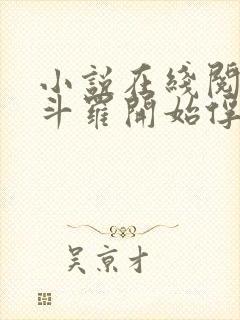 小説在綫閱
斗羅開始俘
吴京才